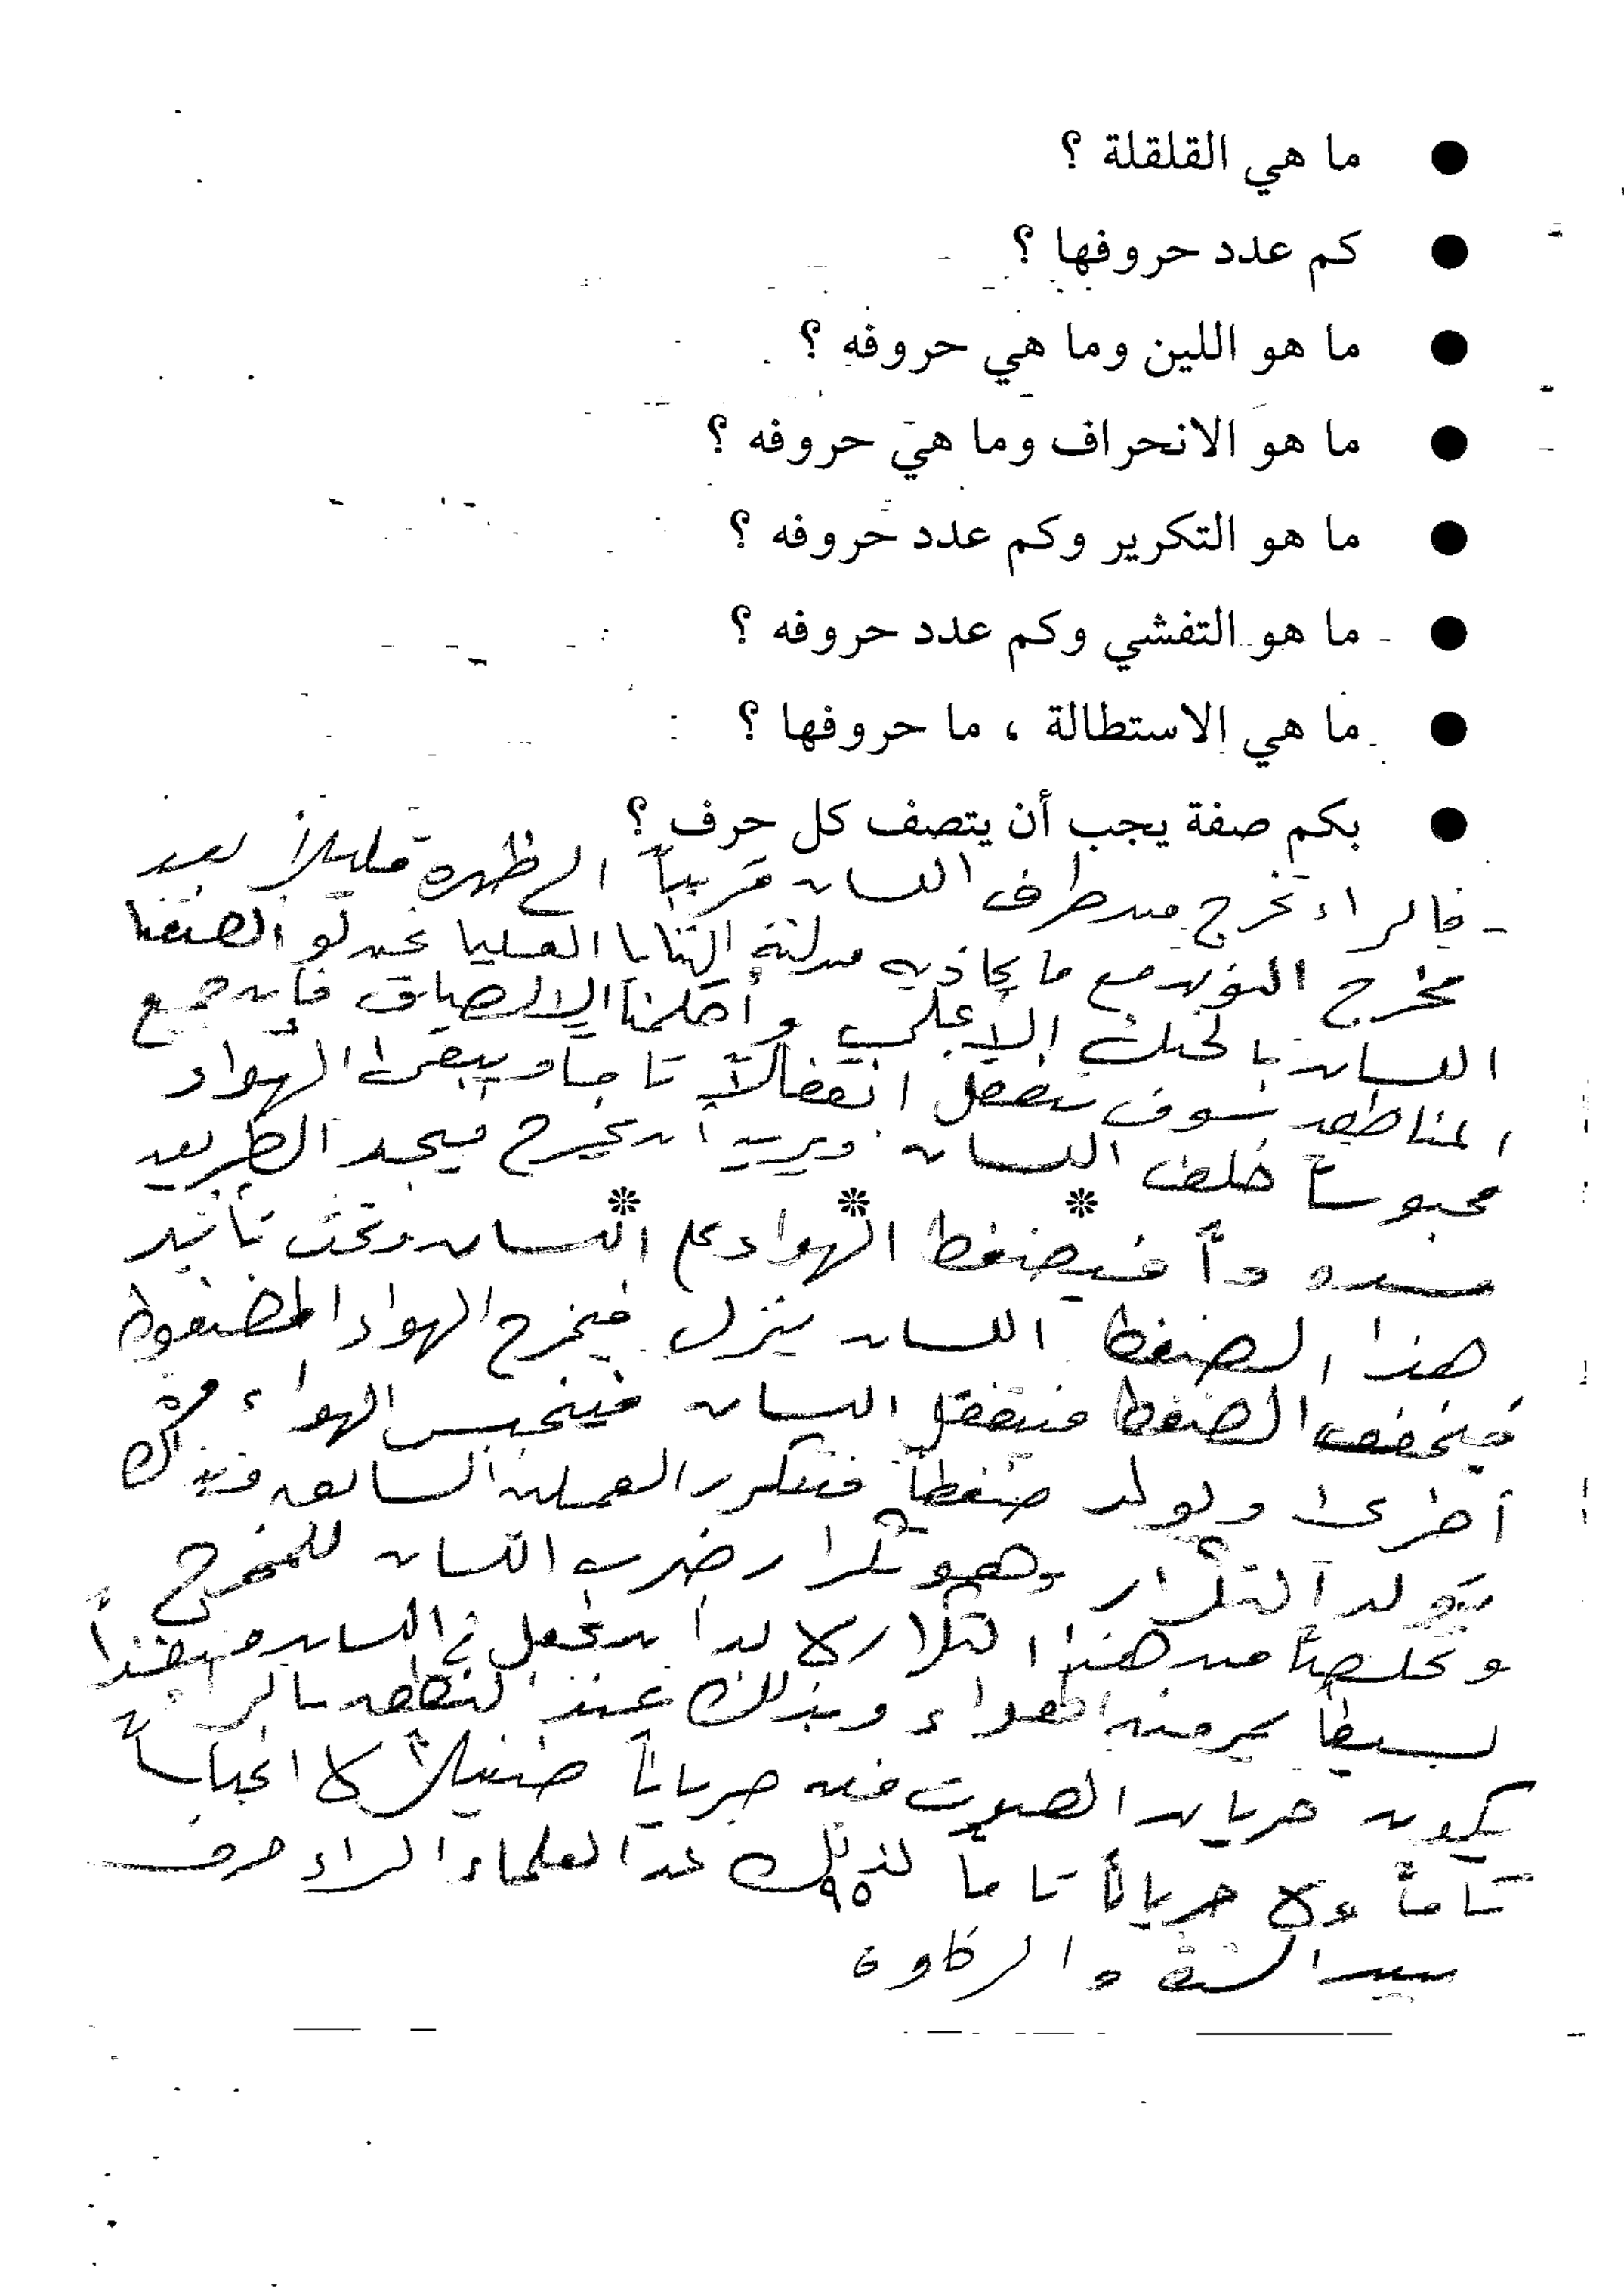 ● ما هي القلقلة ؟
● كم عدد حروفها ؟
● ما هو اللين وما هي حروفه ؟
● ما هو الانحراف وما هي حروفه ؟
● ما هو التكرير وكم عدد حروفه ؟
● ما هو التفشي وكم عدد حروفه ؟
● ما هي الاستطالة ، ما حروفها ؟
● بكم صفة يجب أن يتصف كل حرف ؟
- فالراء تخرج من طرف اللسان قريباً إلى ظهره قليلاً بعد
مخرج النون مع ما يحاذيه من لثة الثنايا العليا نحن لو ألصقنا
اللسان بالحنك الأعلى وأحكمنا الإلصاق فإن جميع
المناطق سوف تقفل انقفالاً تاماً ويبقى الهواء
محبوساً خلف اللسان ويريد أن يخرج فيجد الطريق
* * *
مسدوداً فيضغط الهواء على اللسان وتحت تأثير
هذا الضغط اللسان ينزل فيخرج الهواء المضغوط
فيخفف الضغط فيقفل اللسان فينحبس الهواء مرة
أخرى ويولد ضغطاً فتتكرر العملية السابقة فبذلك
يتولد التكرار وهو تكرار ضرب اللسان للمخرج
وتخلصاً من هذا التكرار لا بد أن نجعل في اللسان منفذاً
بسيطاً يمر منه الهواء وبذلك عند النطق بالراء
يكون جريان الصوت فيه جرياناً ضئيلاً لا انحباساً
تاماً ولا جرياناً تاماً لذلك عد العلماء الراء حرف
٩٥
بين الشدة والرخاوة